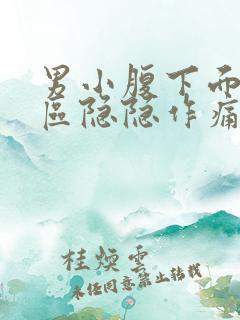 男小腹下而
區隐隐作痛
桂煐雲
未经同意禁止转载